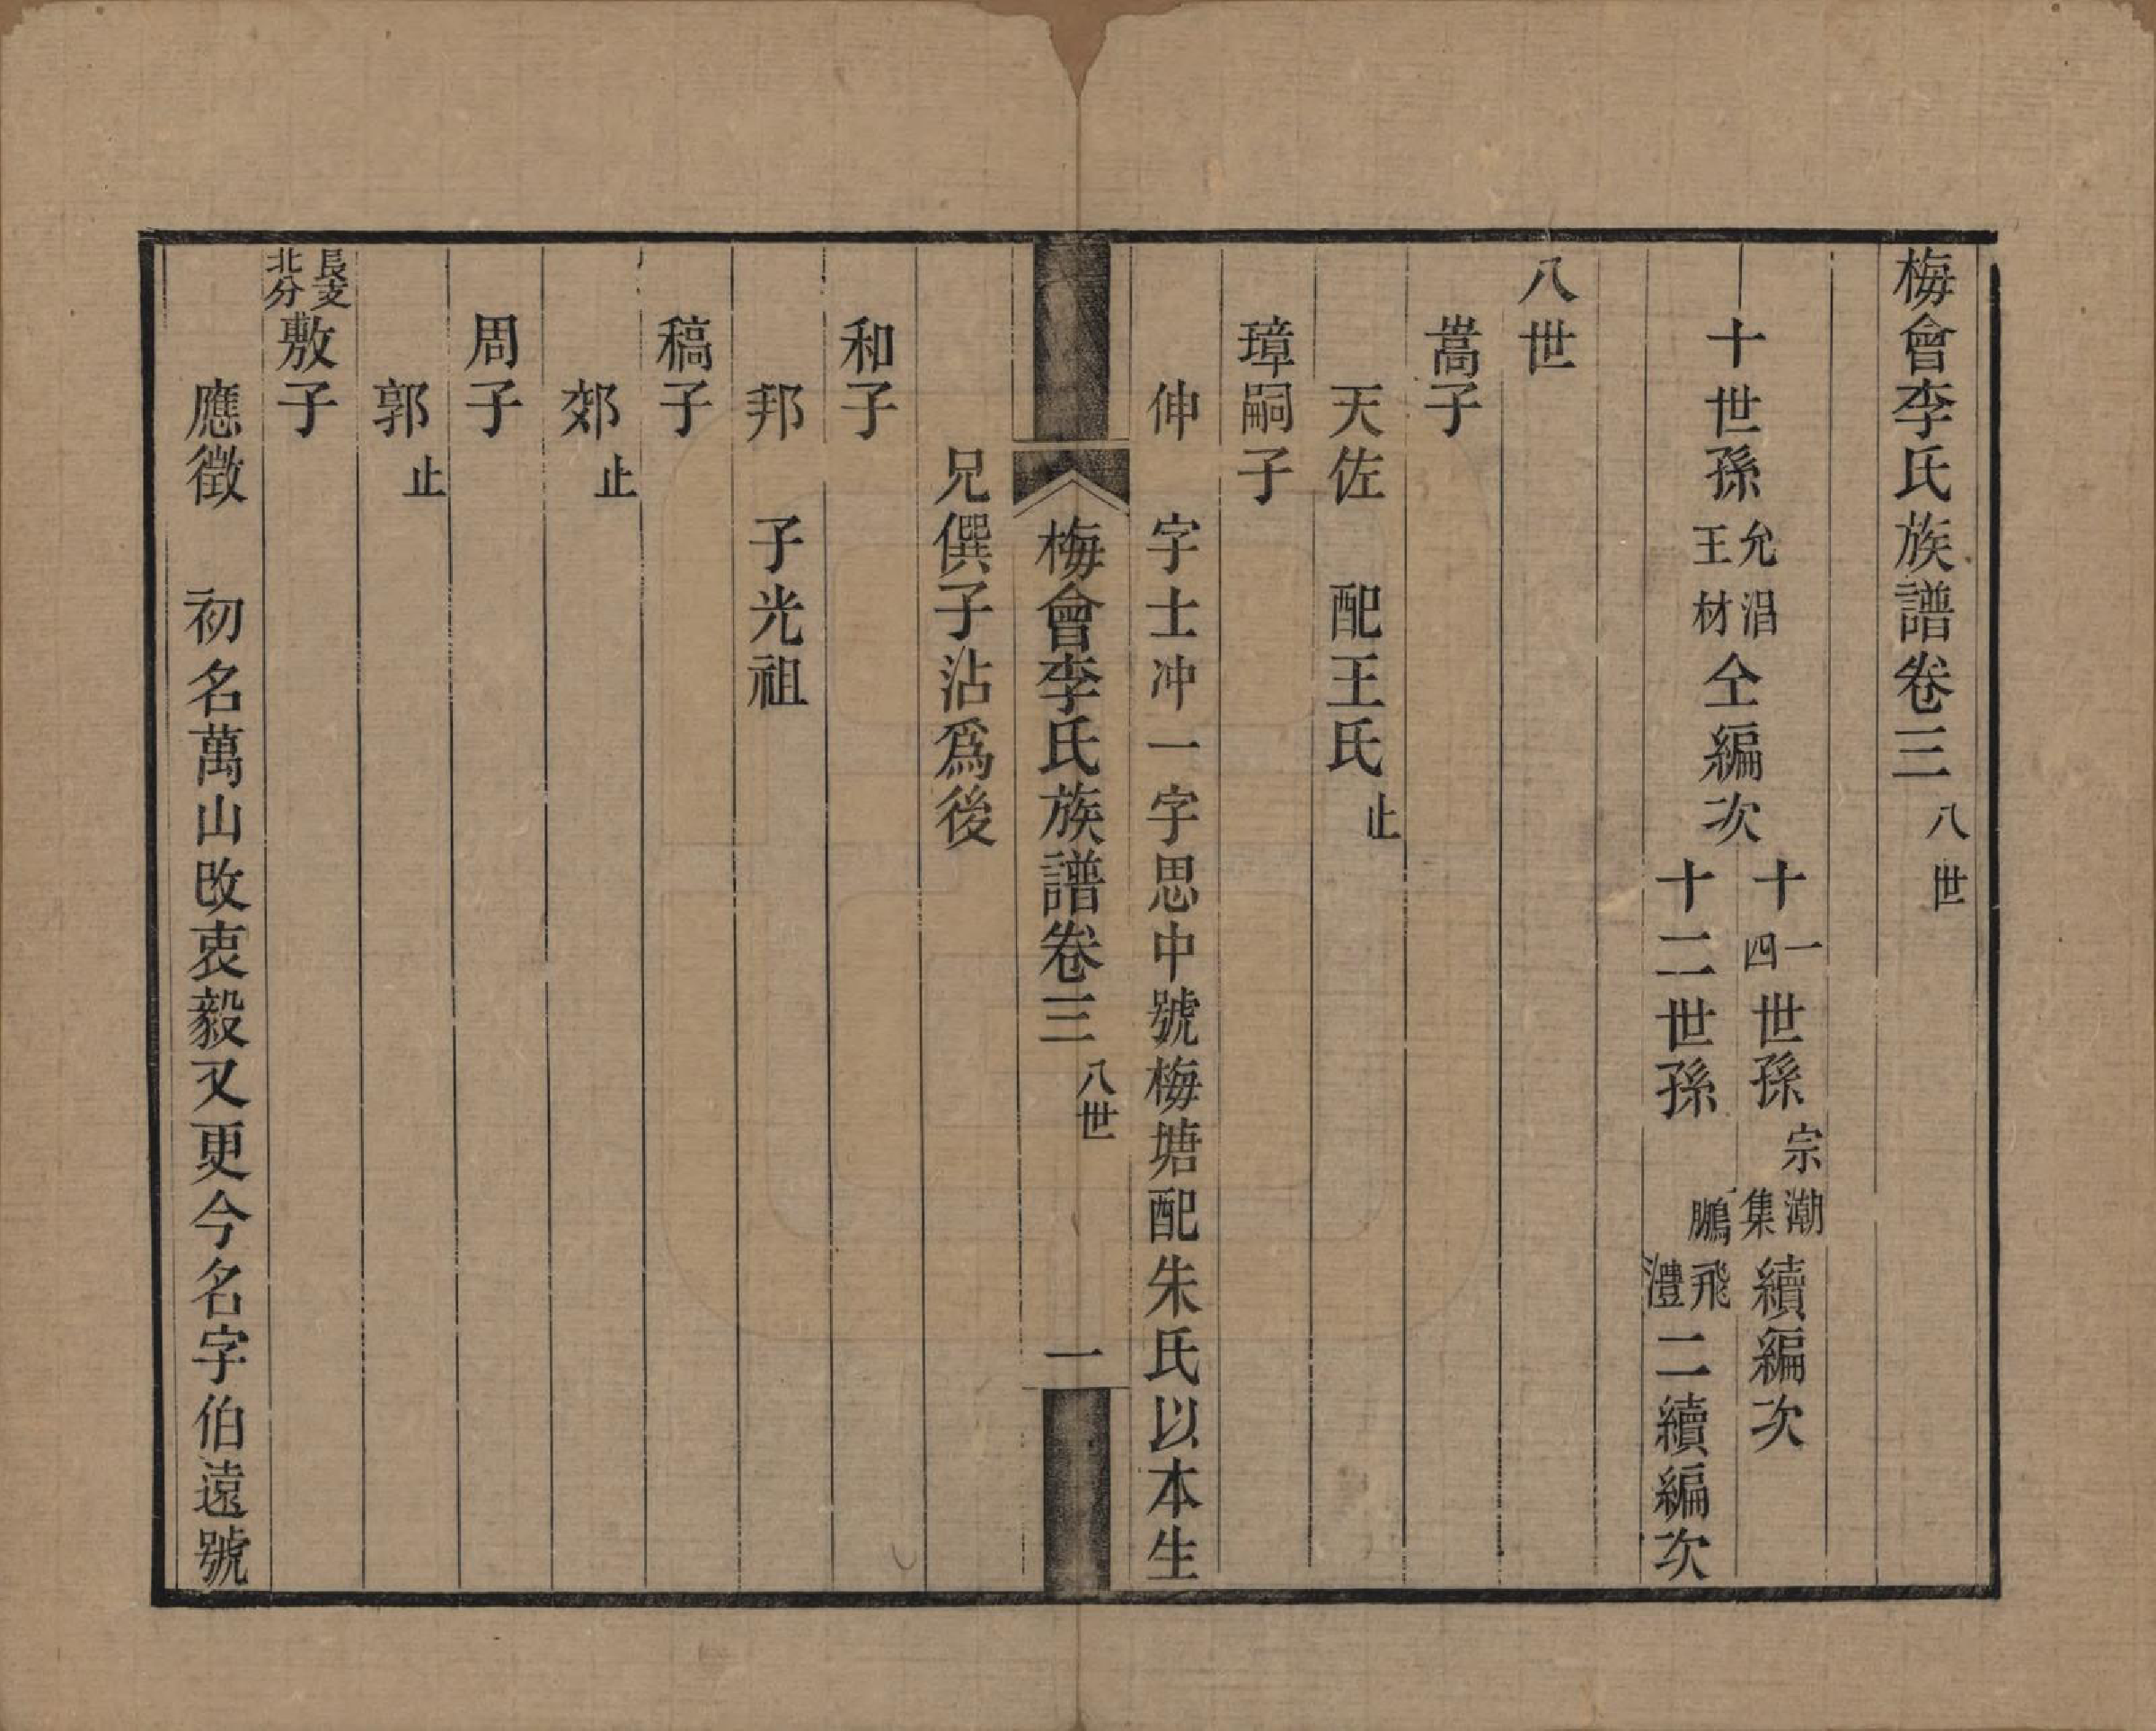 梅會李氏族譜卷三 八世
十世孫 允淐 王材 仝編次
十一 四世孫 宗潮 集 續編次
十二世孫 鵬飛 灃 二續編次
八世
蒿子
天佐 配王氏 止
璋嗣子
伸 字士冲一字思中號梅塘配朱氏以本生
梅會李氏族譜卷三 八世 一
兄僎子沾爲後
和子
邦 子光祖
稿子
郊 止
周子
郭 止
長支北分 敷子
應徵 初名萬山改衷毅又更今名字伯遠號